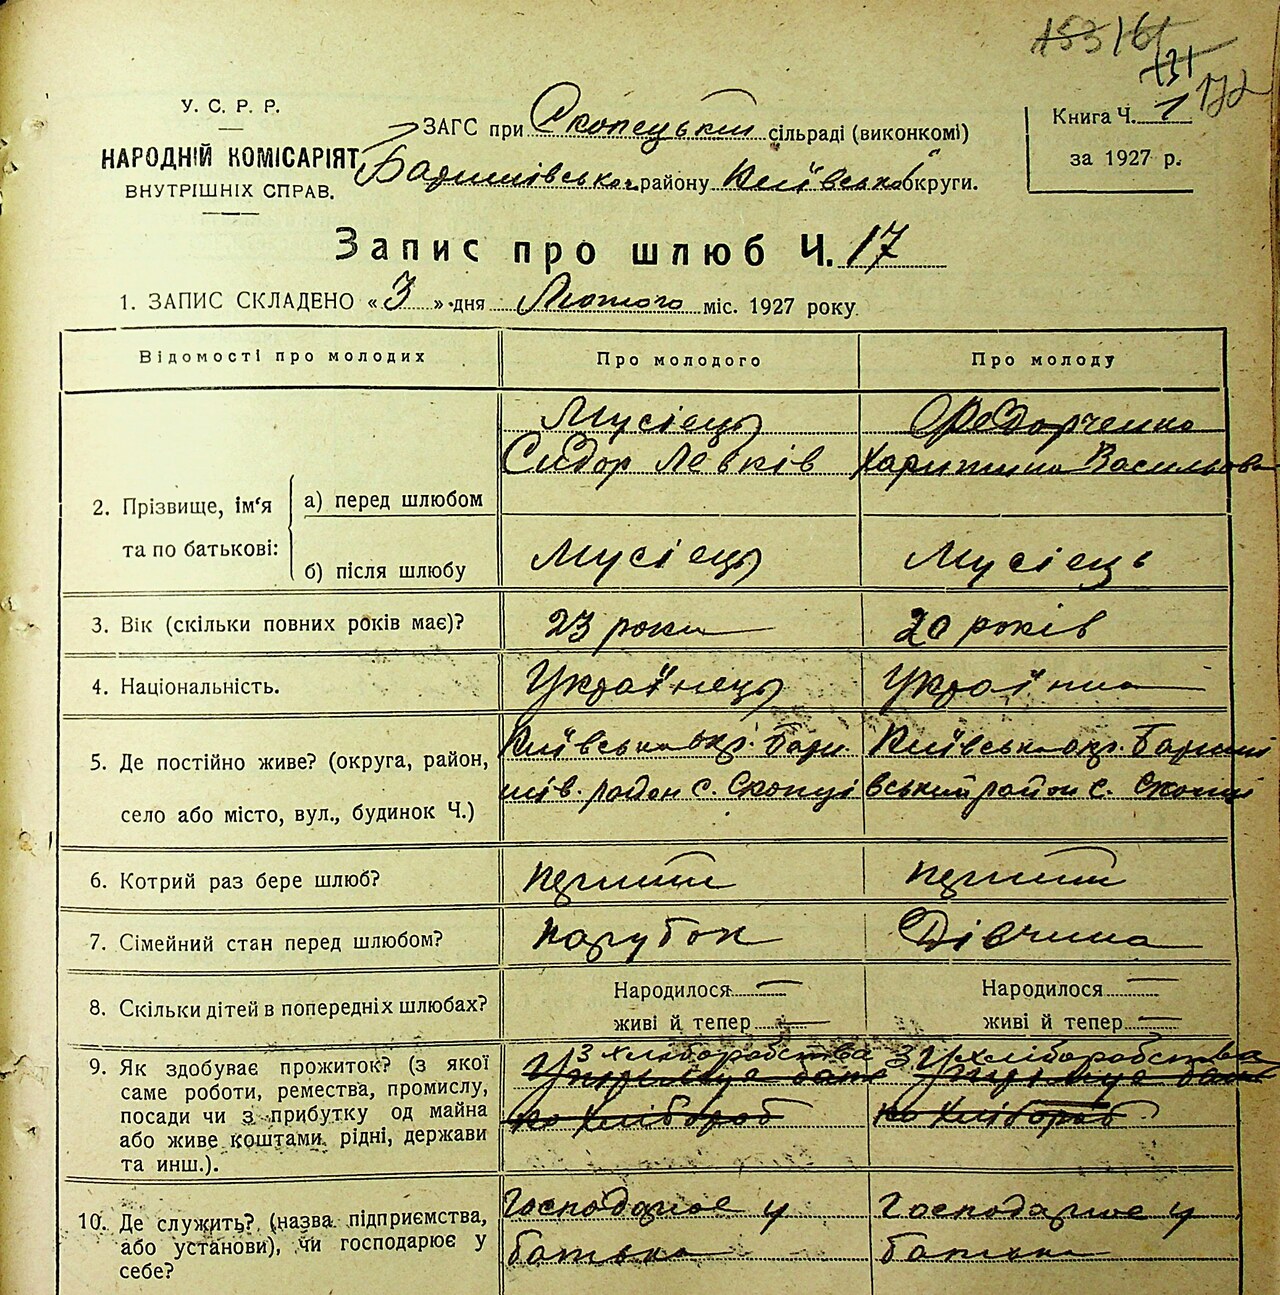 153 161
131
172
У. С. Р. Р.
НАРОДНІЙ КОМІСАРІЯТ
ВНУТРІШНІХ СПРАВ.
ЗАГС при Скопецький сільраді (виконкомі)
району Київської округи.
Книга Ч. 1
за 1927 р.
Запис про шлюб Ч. 17
1. ЗАПИС СКЛАДЕНО « 3 » дня Лютого міс. 1927 року
Відомості про молодих Про молодого Про молоду
Мусієць Федорченко
Сидор Левків Харитина Васильова
2. Прізвище, ім'я та по батькові: а) перед шлюбом
б) після шлюбу Мусієць Мусієць
3. Вік (скільки повних років має)? 23 роки 20 років
4. Національність. Українець Українка
5. Де постійно живе? (округа, район, Київська окр. Бари Київська окр. Бариші
село або місто, вул., будинок Ч.) шів. район с. Скопці вський район с. Скопці
6. Котрий раз бере шлюб? перший перший
7. Сімейний стан перед шлюбом? парубок Дівчина
8. Скільки дітей в попередніх шлюбах? Народилося Народилося
живі й тепер живі й тепер
9. Як здобуває прожиток? (з якої З хліборобства З хліборобства
саме роботи, ремества, промислу,
посади чи з прибутку од майна хлібороб хлібороб
або живе коштами рідні, держави
та инш.).
10. Де служить? (назва підприємства, Господарює у Господарює у
або установи), чи господарює у батька батька
себе?